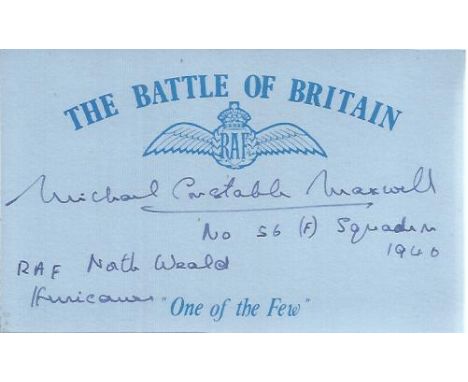 THE BATTLE OF BRITAIN
RAF
Michael Constable Maxwell
No 56 (F) Squadron
1940
RAF North Weald
Hurricanes
"One of the Few"